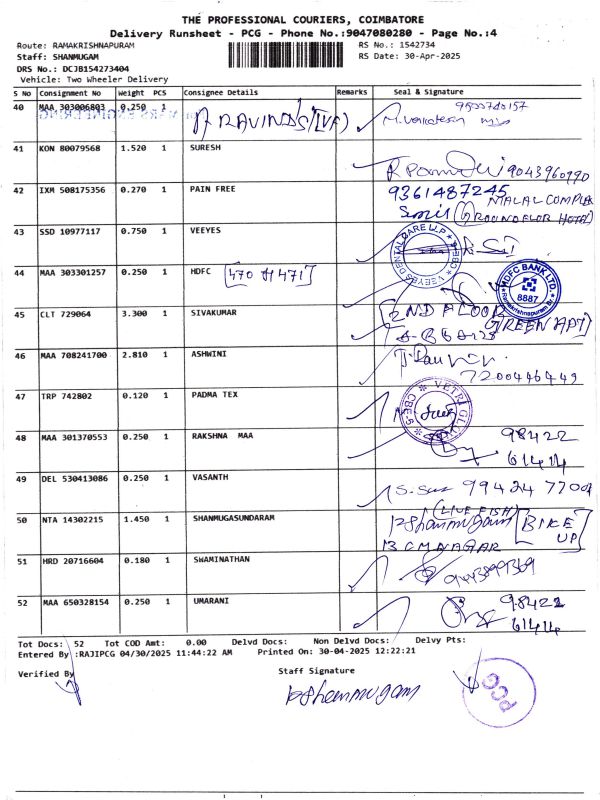 THE PROFESSIONAL COURIERS, COIMBATORE
Delivery Runsheet - PCG - Phone No.:9047080280 - Page No.:4
Route: RAMAKRISHNAPURAM RS No.: 1542734
Staff: SHANMUGAM RS Date: 30-Apr-2025
DRS No.: DCJB154273404
Vehicle: Two Wheeler Delivery
S No Consignment No Weight PCS Consignee Details Remarks Seal & Signature
40 MAA 303006803 0.250 1
41 KON 80079568 1.520 1 SURESH
9043960990
42 IXM 508175356 0.270 1 PAIN FREE 9361487245
43 SSD 10977117 0.750 1 VEEYES
VEEYES DENTAL CARE LLP
44 MAA 303301257 0.250 1 HDFC [470 H 471]
HDFC BANK LTD.
8887
Ramakrishnapuram Br
45 CLT 729064 3.300 1 SIVAKUMAR [2ND FLOOR
GREEN APT]
46 MAA 708241700 2.810 1 ASHWINI
7200446449
47 TRP 742802 0.120 1 PADMA TEX
VETRI
48 MAA 301370553 0.250 1 RAKSHNA MAA 98422
61414
49 DEL 530413086 0.250 1 VASANTH 99424 77001
(LIVE FISH)
50 NTA 14302215 1.450 1 SHANMUGASUNDARAM P Shanmugam [BIKE UP]
51 HRD 20716604 0.180 1 SWAMINATHAN
52 MAA 650328154 0.250 1 UMARANI 98422
61414
Tot Docs: 52 Tot COD Amt: 0.00 Delvd Docs: Non Delvd Docs: Delvy Pts:
Entered By :RAJIPCG 04/30/2025 11:44:22 AM Printed On: 30-04-2025 12:22:21
Verified By Staff Signature
P Shanmugam
PCG